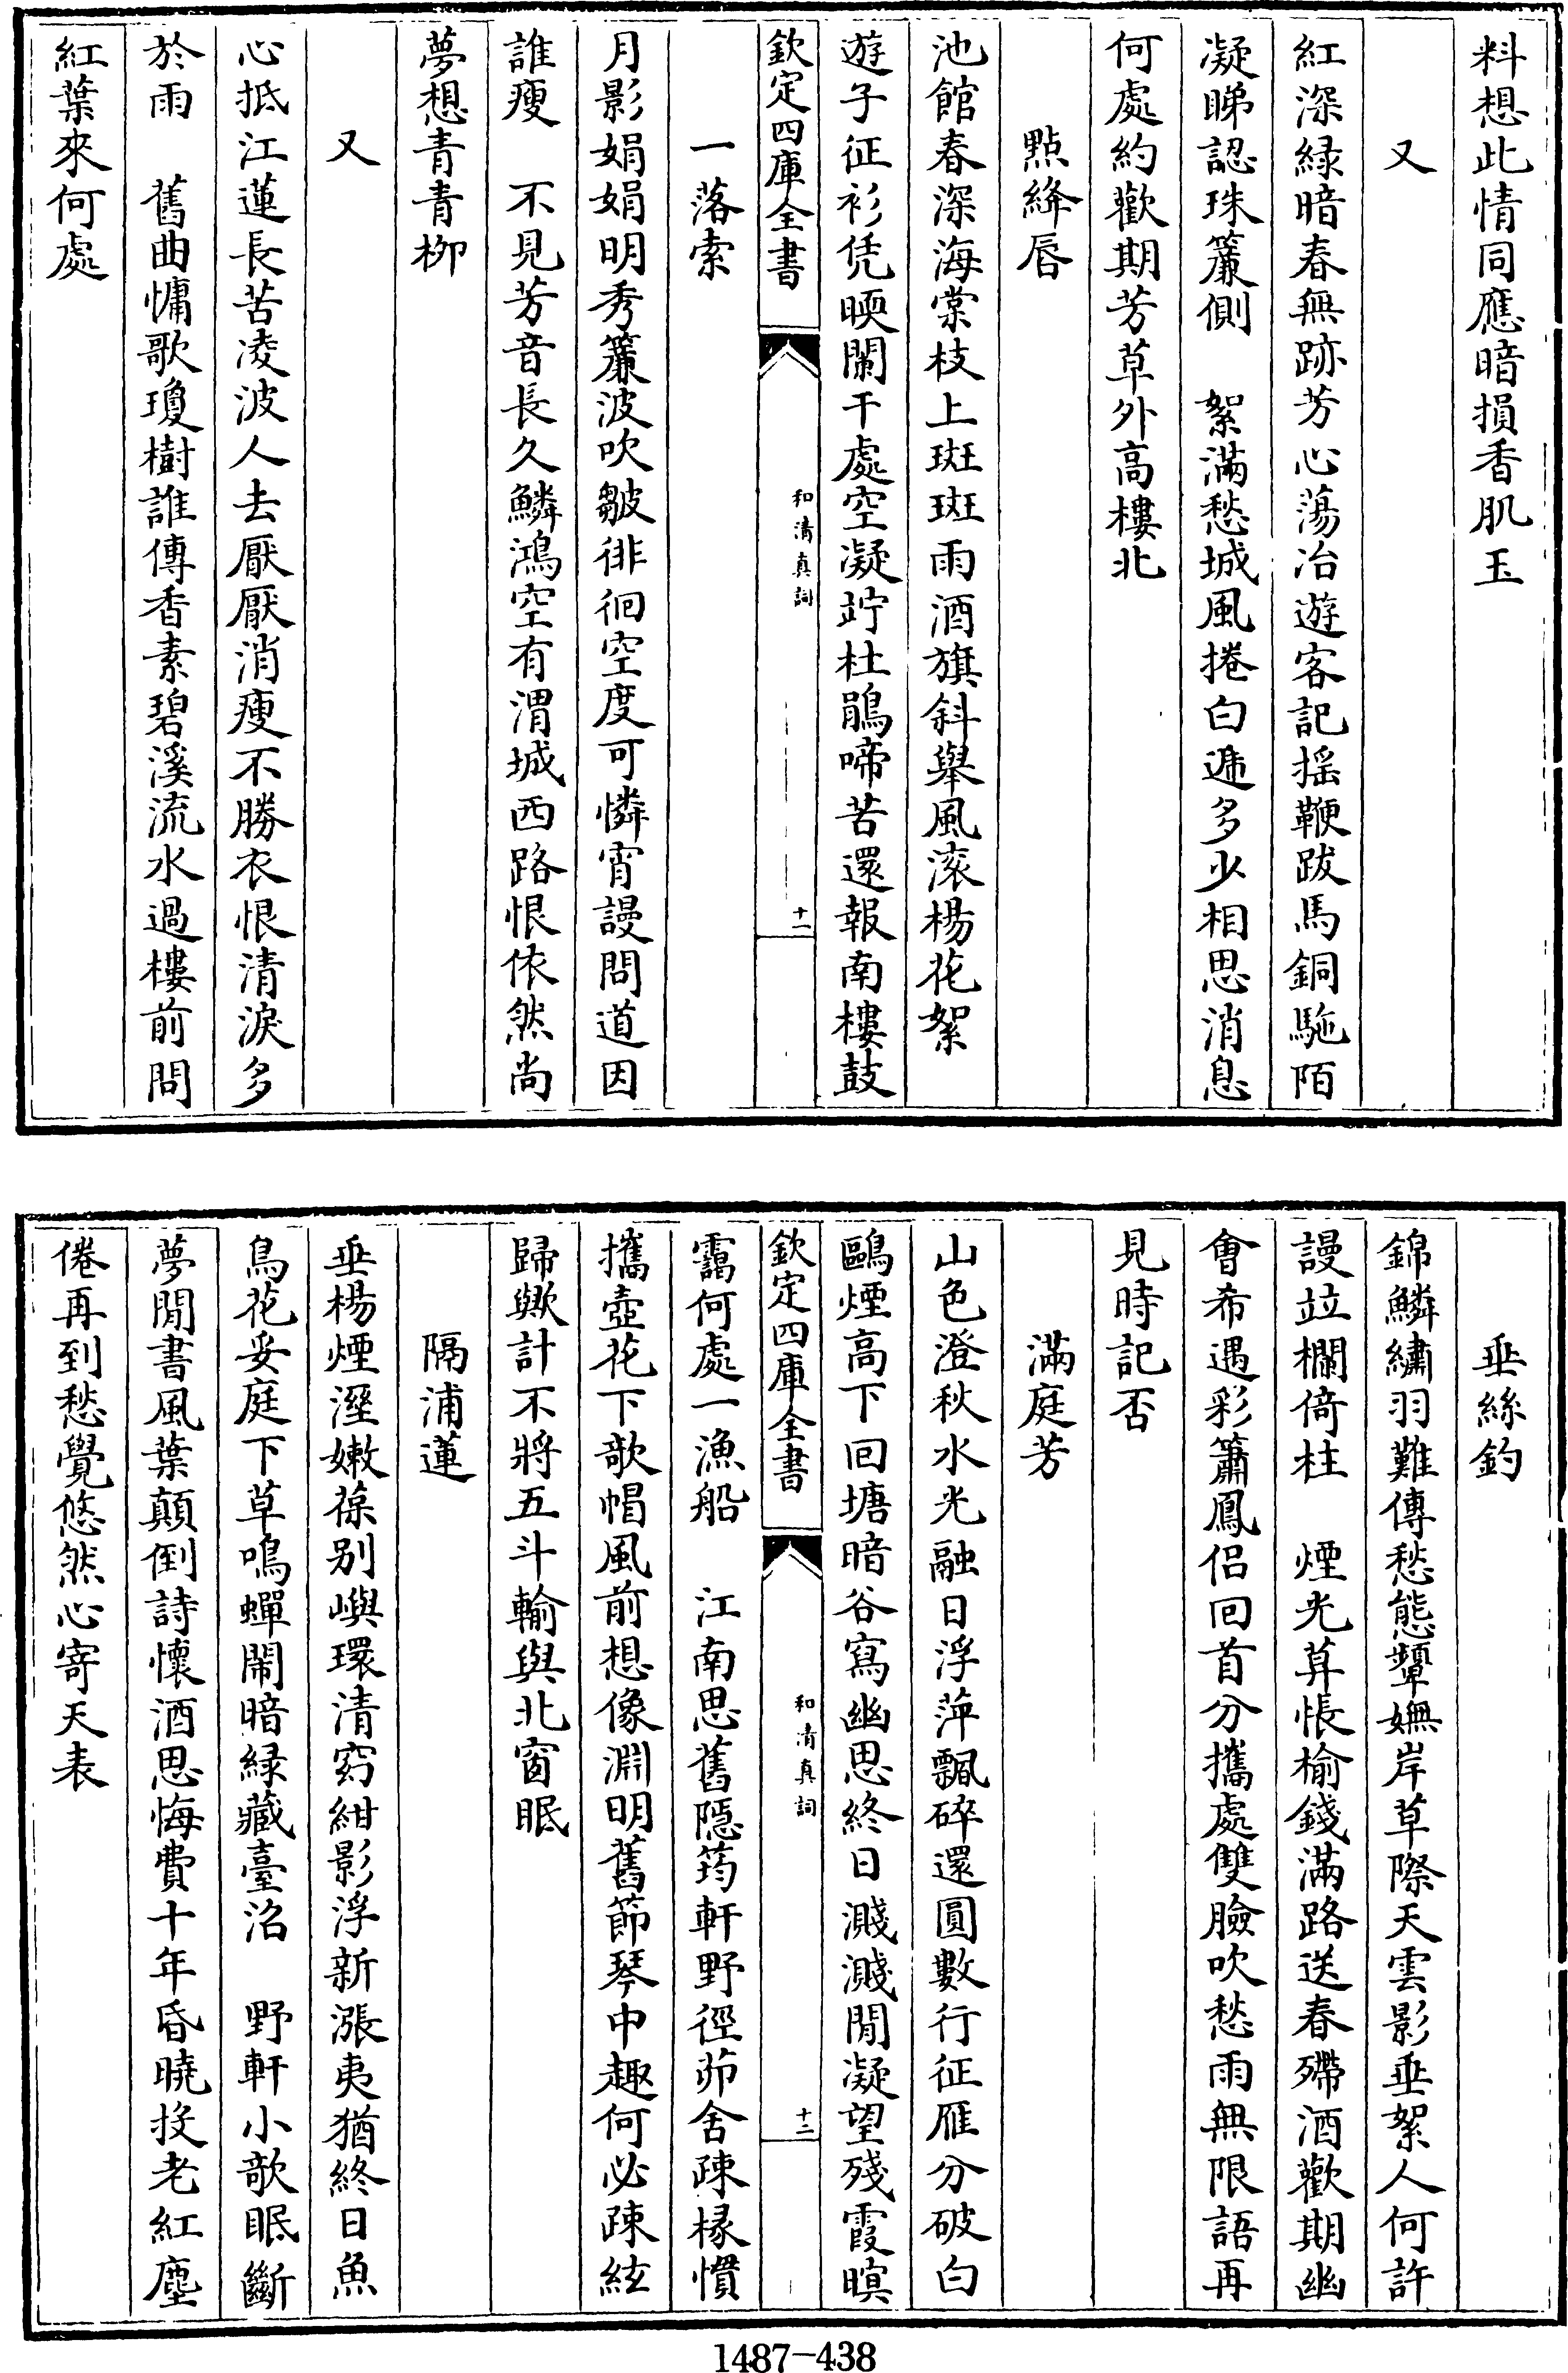 料想此情同應暗損香肌玉
又
紅深緑暗春無跡芳心蕩冶遊客記揺鞭跋馬銅駞陌
凝睇認珠簾側　絮滿愁城風捲白遞多少相思消息
何處約歡期芳草外高樓北
點絳唇
池館春深海棠枝上斑斑雨酒旗斜舉風滚楊花絮
遊子征衫凭暎闌干處空凝竚杜鵑啼苦還報南樓鼓
欽定四庫全書
和清真詞
十一
一落索
月影娟娟明秀簾波吹皺徘徊空度可憐宵謾問道因
誰瘦　不見芳音長久鱗鴻空有渭城西路恨依然尚
夢想青青栁
又
心抵江蓮長苦凌波人去厭厭消瘦不勝衣恨清淚多
於雨　舊曲慵歌瓊樹誰傳香素碧溪流水過樓前問
紅葉來何處
垂絲釣
錦鱗繡羽難傳愁態顰嫵岸草際天雲影垂絮人何許
謾竝欄倚柱　煙光算悵榆錢滿路送春殢酒歡期幽
會希遇彩簫鳳侣回首分攜處雙臉吹愁雨無限語再
見時記否
滿庭芳
山色澄秋水光融日浮萍飄碎還圓數行征雁分破白
鷗煙高下回塘暗谷寫幽思終日濺濺閒凝望殘霞暝
欽定四庫全書
和清真詞
十二
靄何處一漁船　江南思舊隱筠軒野徑茆舍疎椽慣
攜壺花下欹帽風前想像淵明舊節琴中趣何必疎絃
歸歟計不將五斗輸與北窗眠
隔浦蓮
垂楊煙溼嫩葆别嶼環清窈紺影浮新漲夷猶終日魚
鳥花妥庭下草鳴蟬鬧暗緑藏臺沼　野軒小欹眠斷
夢閒書風葉顛倒詩懷酒思悔費十年昏曉投老紅塵
倦再到愁覺悠然心寄天表
1487-438